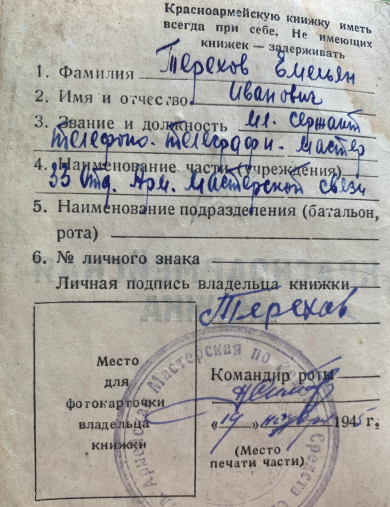 Красноармейскую книжку иметь
всегда при себе. Не имеющих
книжек — задерживать
1. Фамилия Терехов Емельян
2. Имя и отчество Иванович
3. Звание и должность мл. сержант
телефоно. телеграфн. мастер
4. Наименование части (учреждения)
33 Отд. Арм. Мастерской связи
5. Наименование подразделения (батальон,
рота)
6. № личного знака
Личная подпись владельца книжки
Терехов
Место
для
фотокарточки
владельца
книжки
Командир роты
„14" 1945 г.
(Место
печати части)
Армейская Мастерская по
Средств